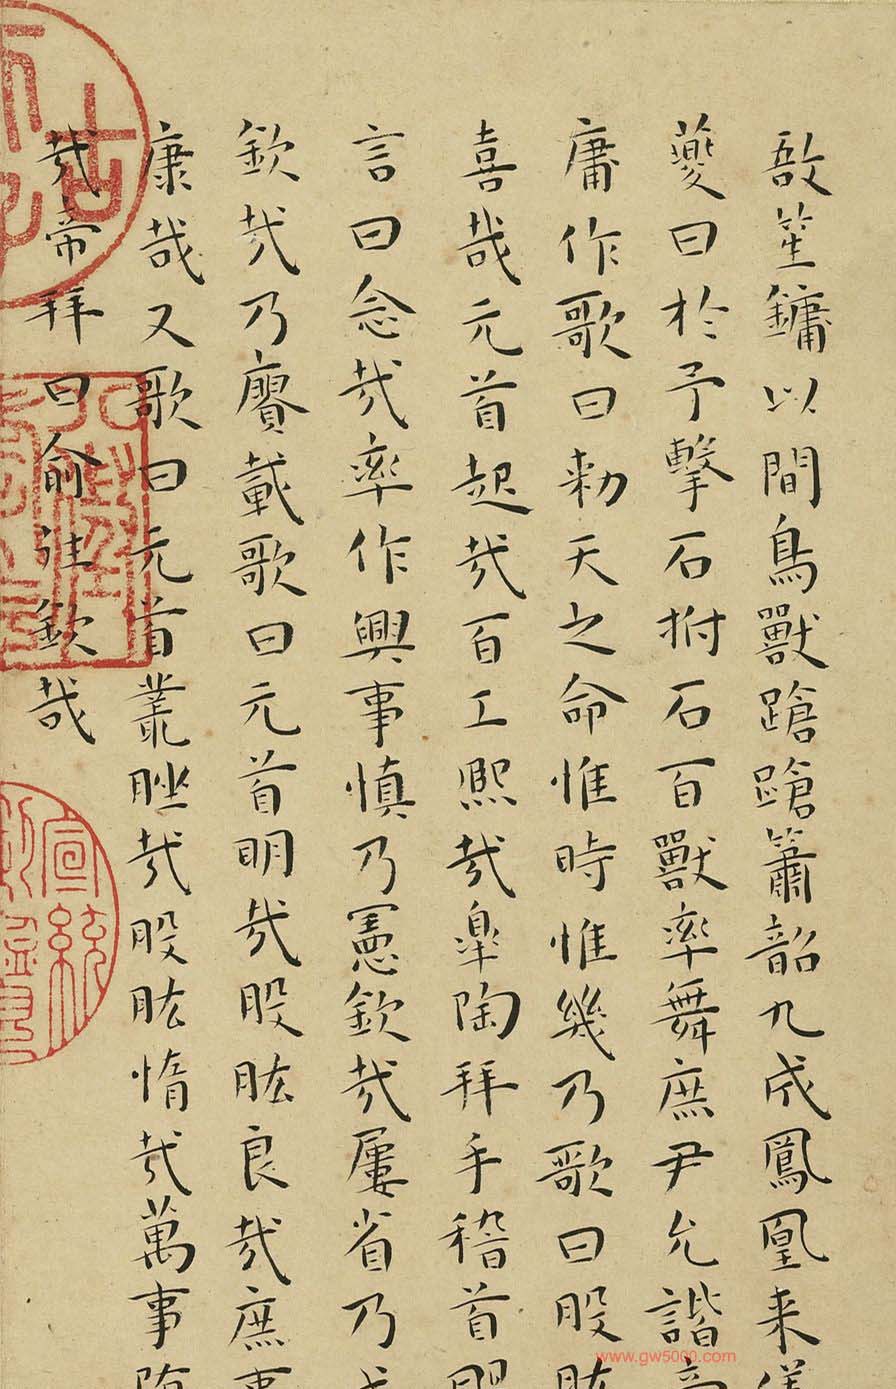 敔笙鏞以間鳥獸蹌蹌簫韶九成鳳凰来儀
夔曰於予擊石拊石百獸率舞庶尹允諧帝
庸作歌曰勑天之命惟時惟幾乃歌曰股肱
喜哉元首起哉百工熙哉皐陶拜手稽首颺
言曰念哉率作興事慎乃憲欽哉屢省乃成
欽哉乃賡載歌曰元首明哉股肱良哉庶事
康哉又歌曰元首叢脞哉股肱惰哉萬事墮
哉帝拜曰俞往欽哉
宣統
www.gw5000.com